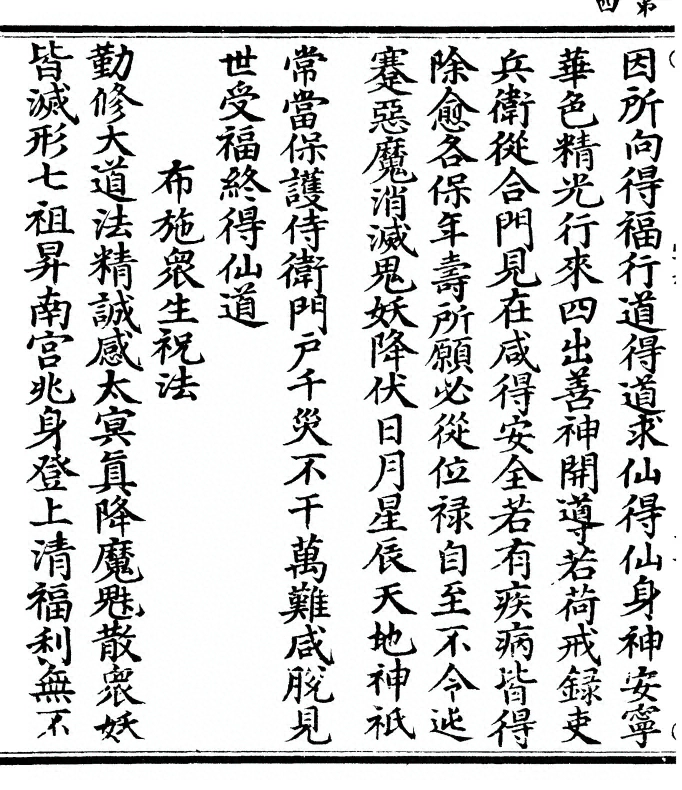 因所向得福行道得道求仙得仙身神安寧
華色精光行來四出善神開導若荷戒錄吏
兵衛從合門見在咸得安全若有疾病皆得
除愈各保年壽所願必從位祿自至不令迍
蹇惡魔消滅鬼妖降伏日月星辰天地神祇
常當保護侍衛門戶千災不干萬難咸脫見
世受福終得仙道
布施眾生祝法
勤修大道法精誠感太冥真降魔魁散眾妖
皆滅形七祖昇南宮兆身登上清福利無不